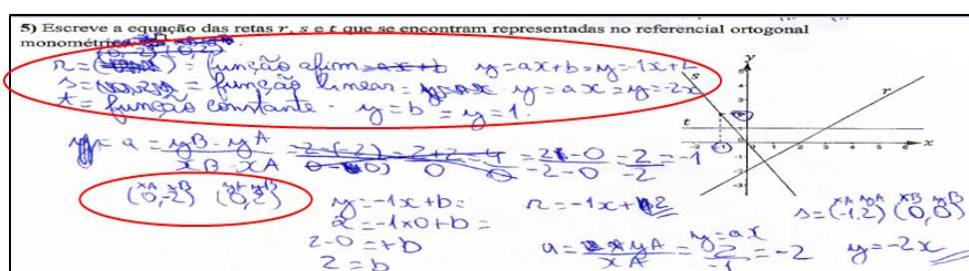 5) Escreve a equação das retas r, s e t que se encontram representadas no referencial ortogonal
monométrico
r = = função afim y = ax + b = y = -1x + 2
s = = função linear = y = ax = y = -2x
t = função constante - y = b = y = 1.
a = yB - yA / xB - xA = 2 - 0 / -2 - 0 = 2 / -2 = -1
xA xB
(0, -2) (0, 2)
y = -1x + b =
2 = -1x0 + b =
2 - 0 = + b
2 = b
r = -1x + 2
xA yA xB yB
s = (-1, 2) (0, 0)
y = ax
a = yA / xA = 2 / -1 = -2 y = -2x
y
s
r
t
x